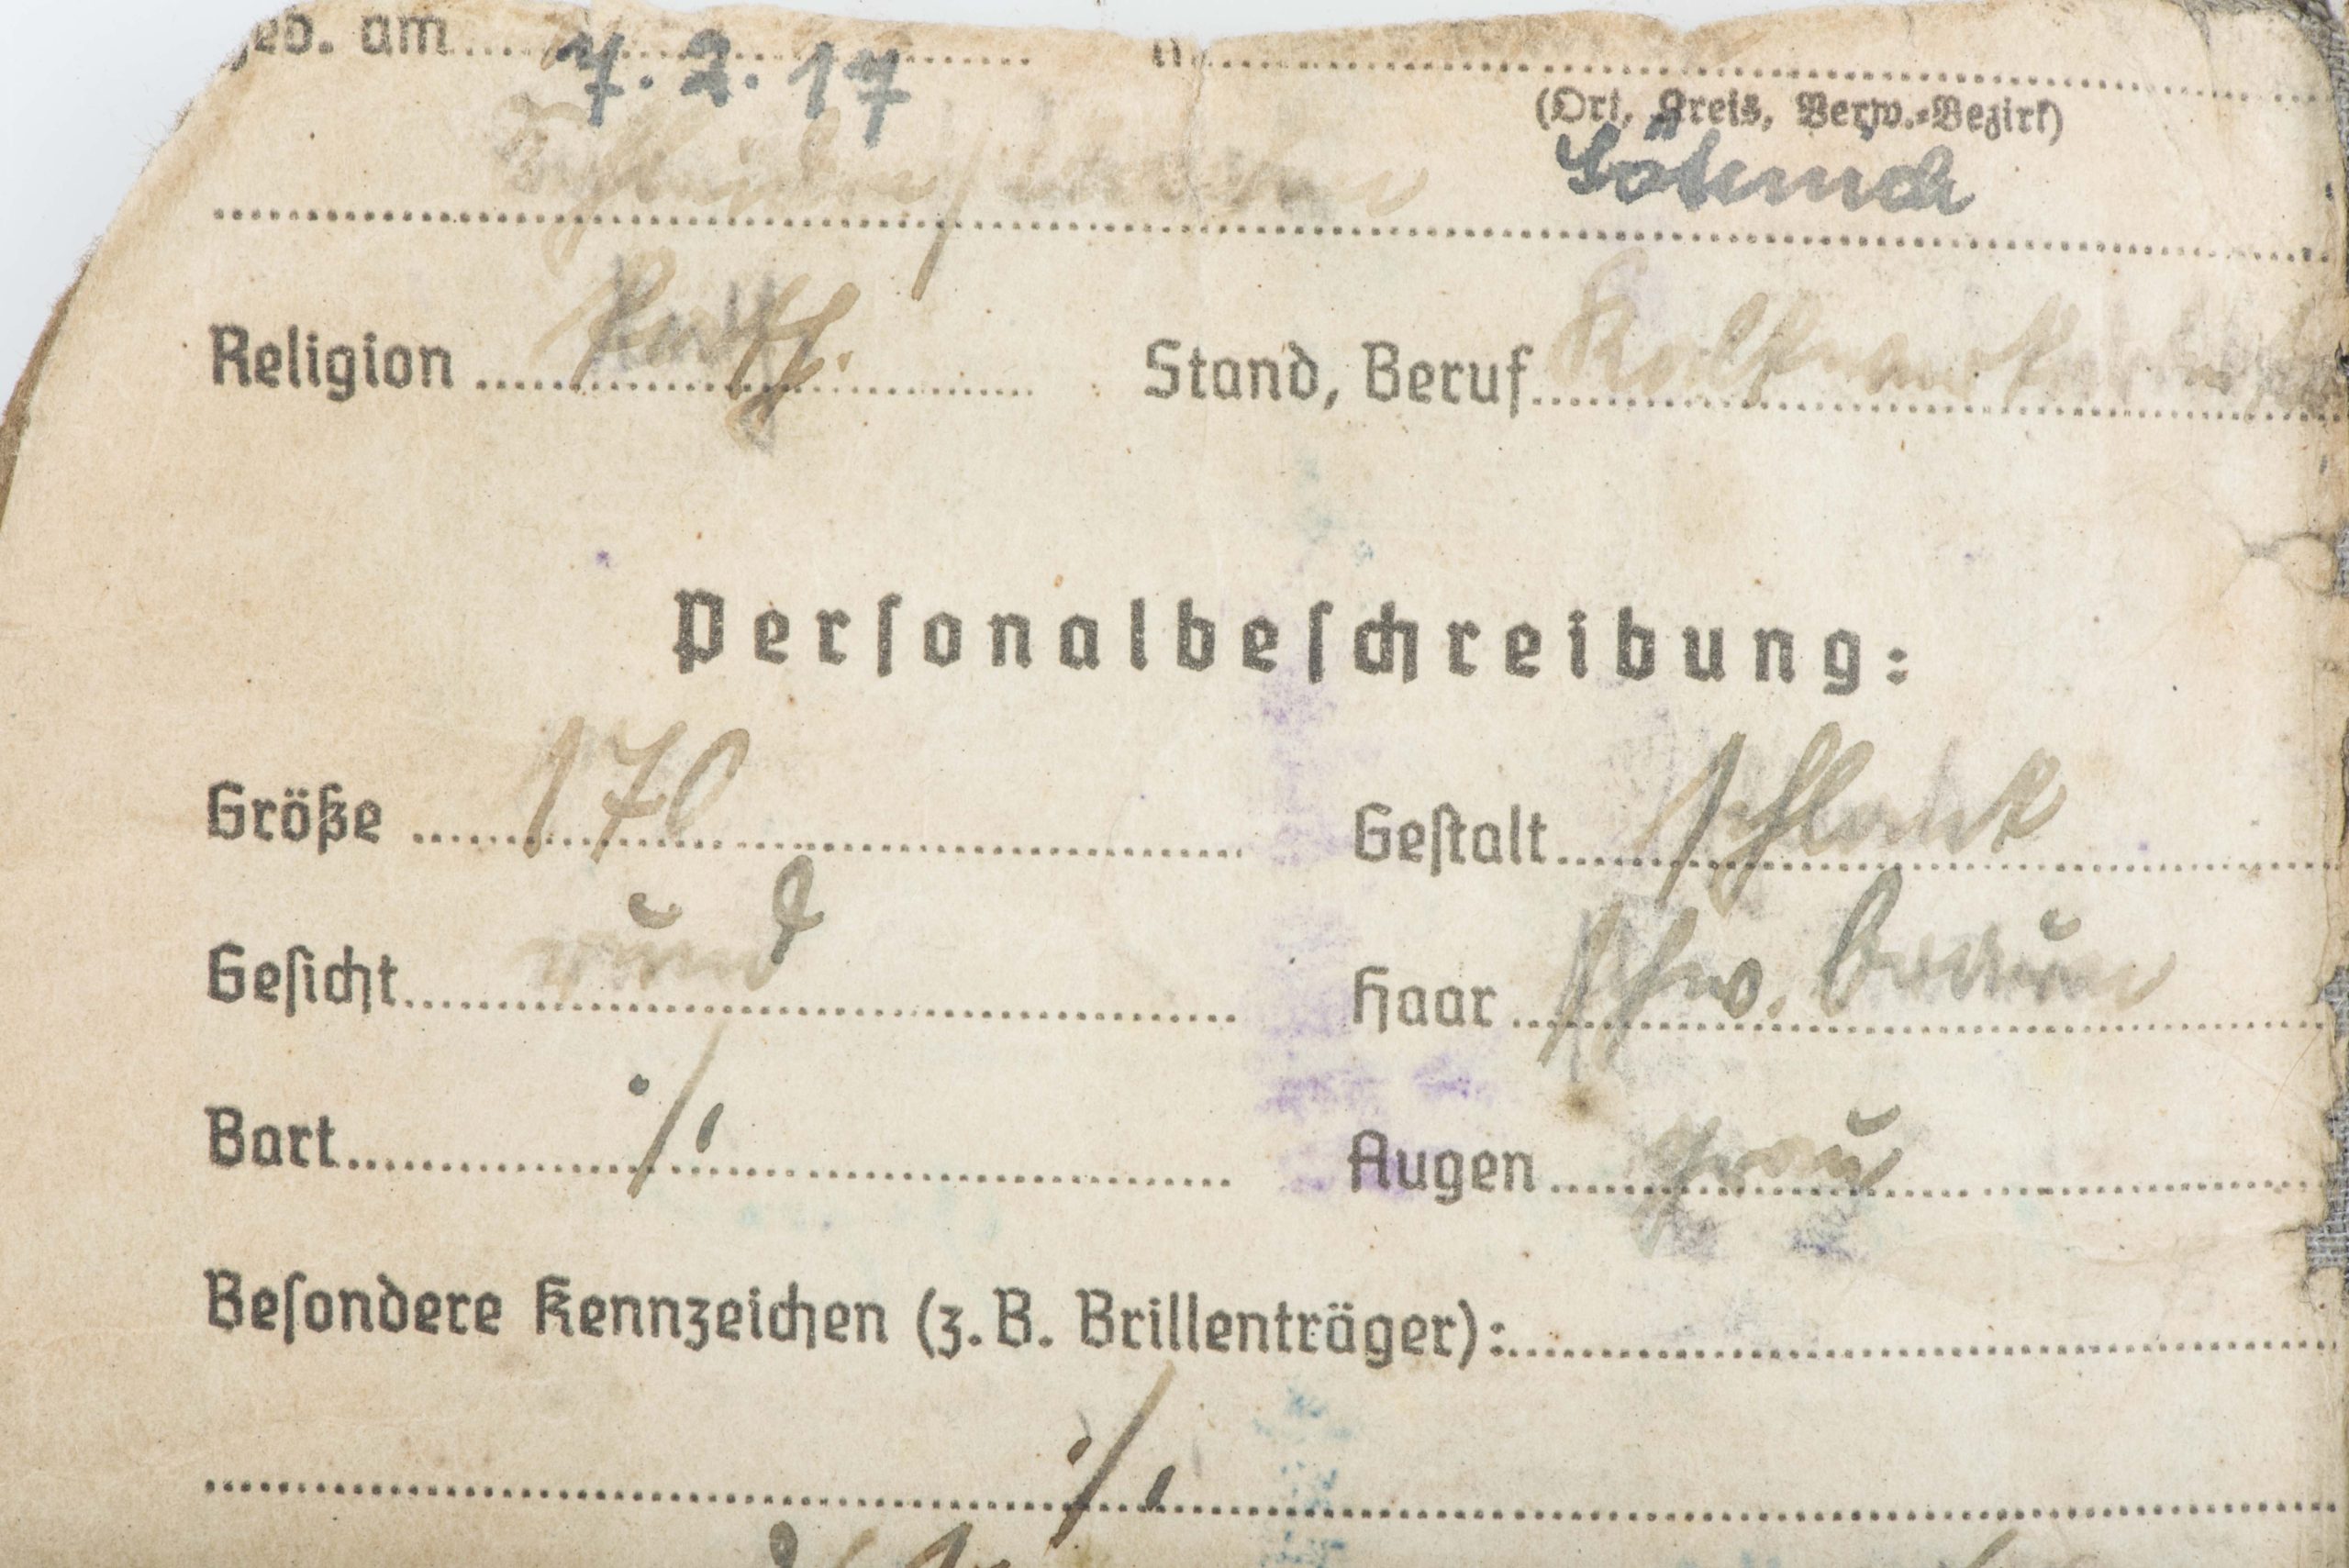 geb. am 7.2.17
(Ort, Kreis, Verw.-Bezirk)
Religion kath. Stand, Beruf
Personalbeschreibung:
Größe 170 Gestalt schlank
Gesicht rund Haar schw. braun
Bart ./. Augen grau
Besondere Kennzeichen (z. B. Brillenträger):
./.